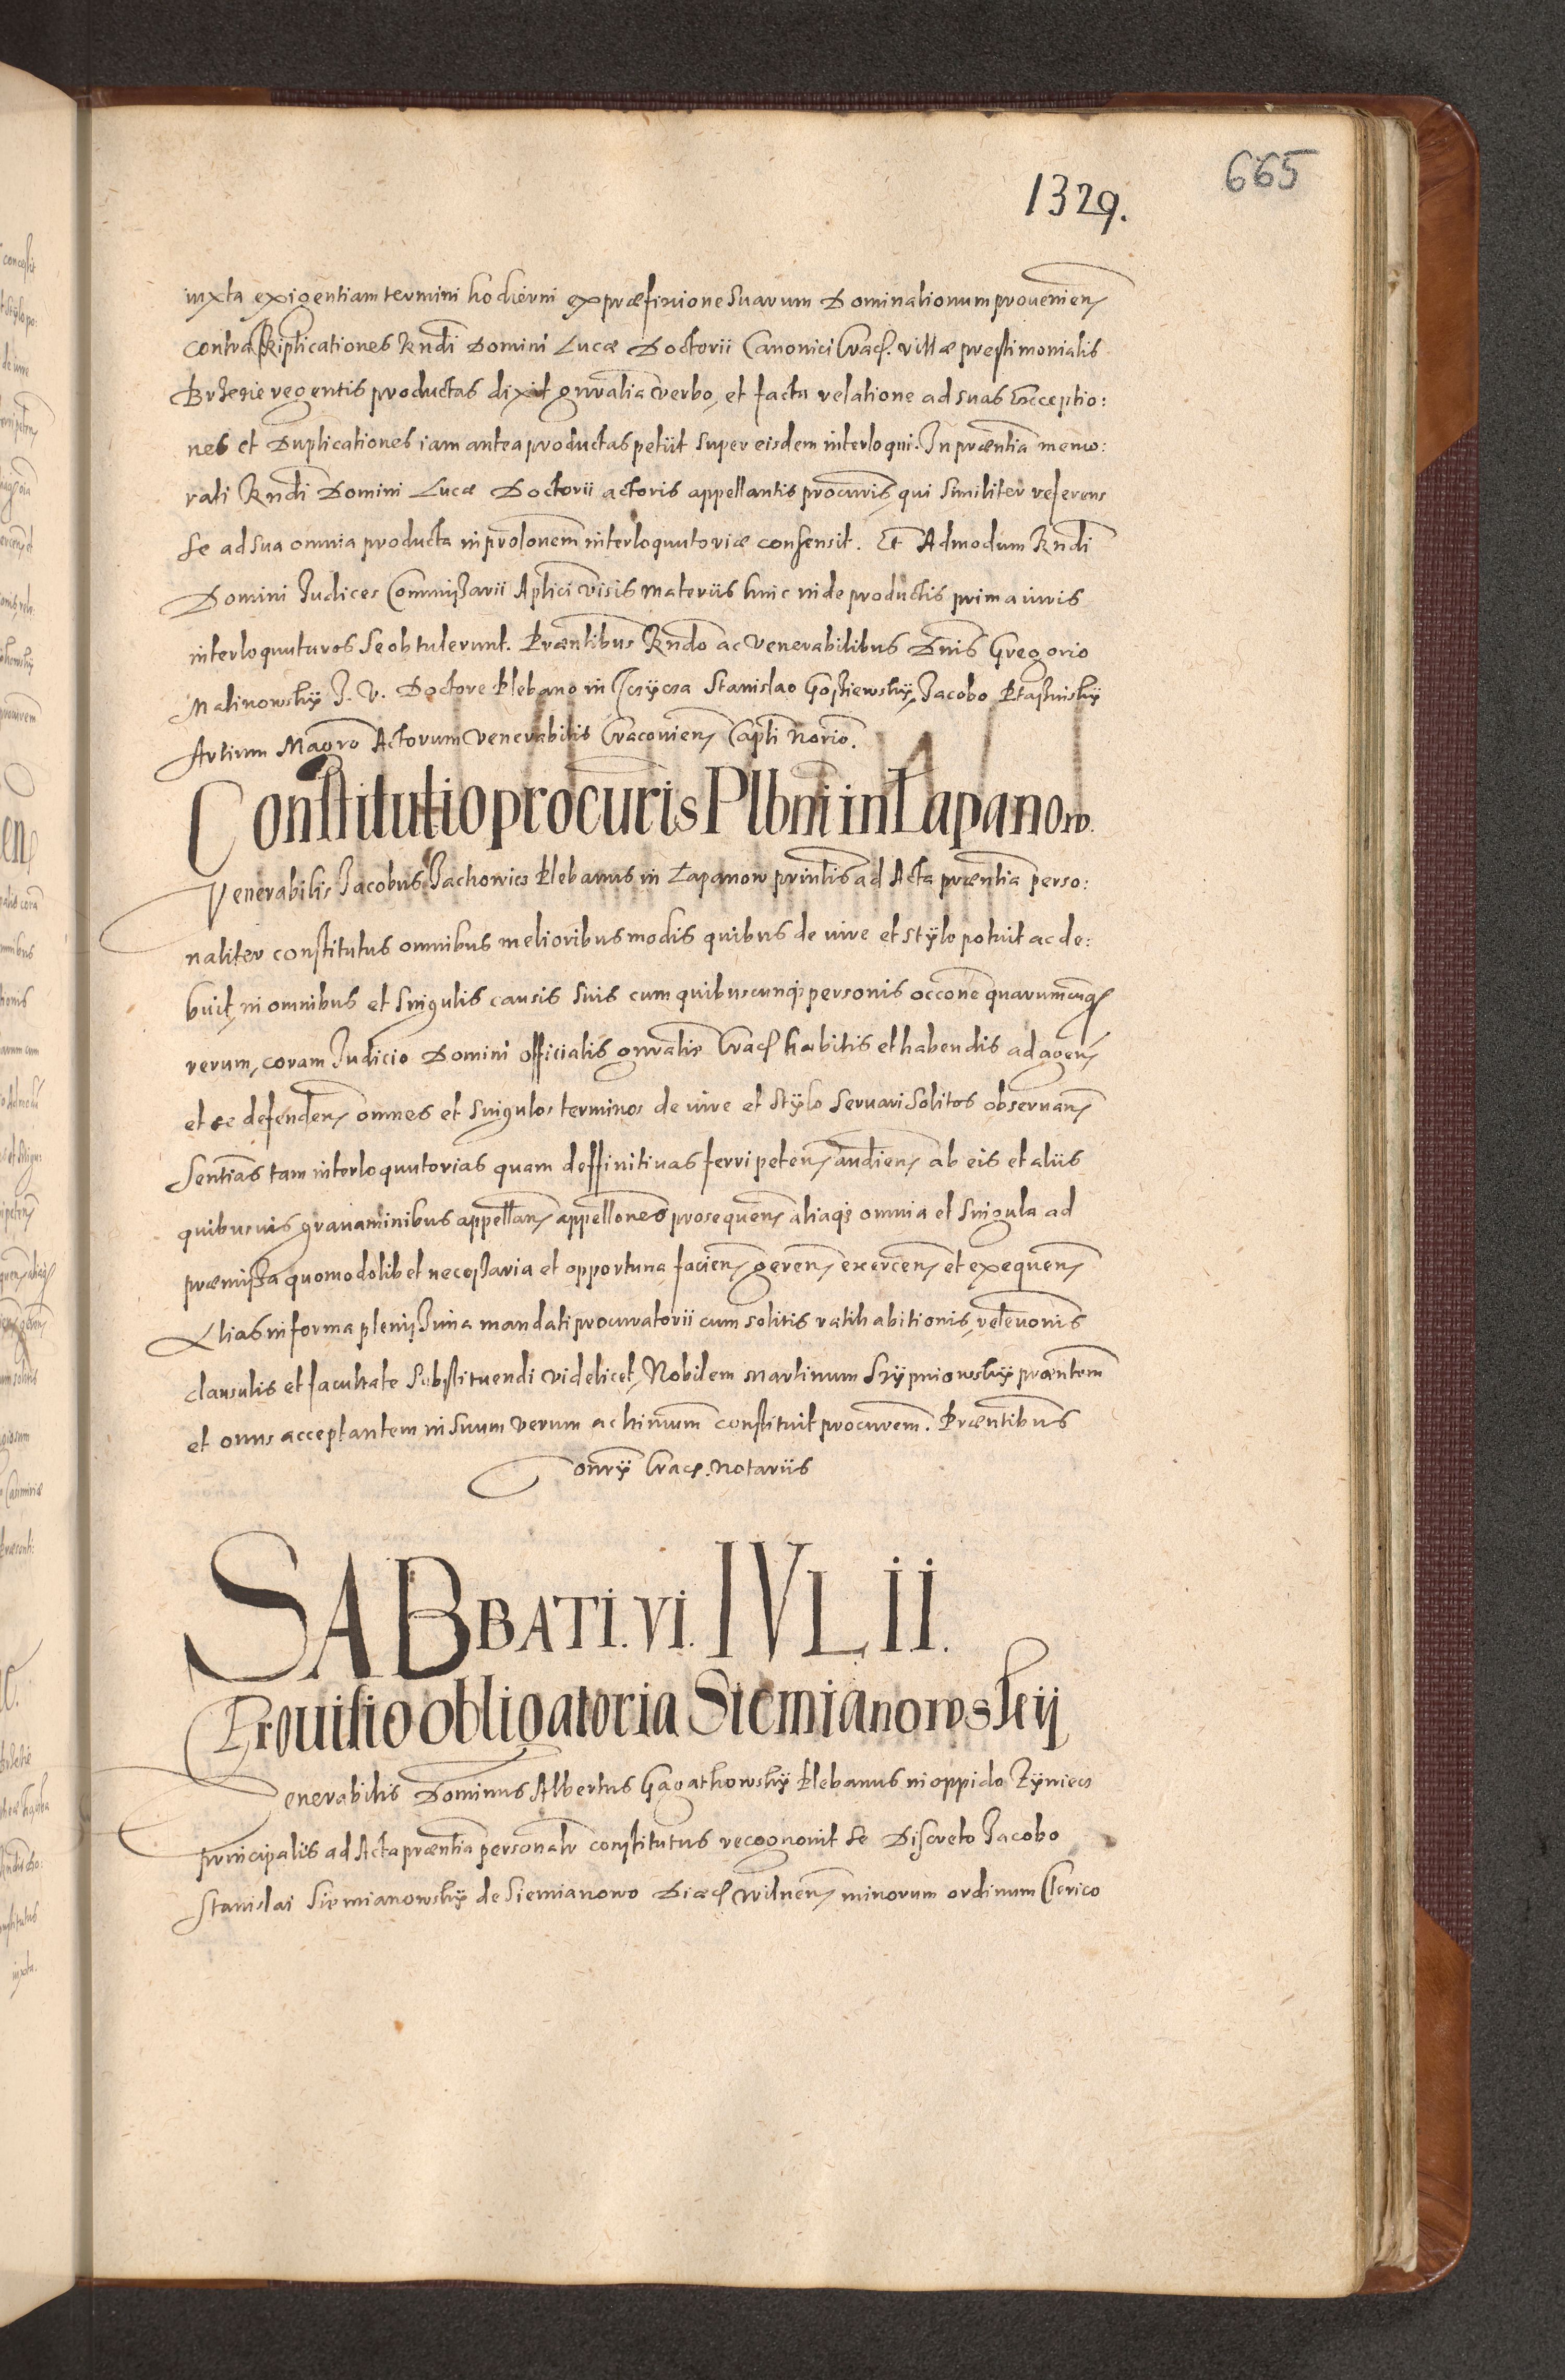 665
1329.
iuxta exigentiam termini hodierni ex præfixione suarum Dominationum prouenien
contra Triplicationes Rndi Domini Lucæ Doctorii Canonici Crac. villæ prestimonialis
Brzezie regentis productas dixit gnralia verbo, et facta relatione ad suas Exceptio:
nes et Duplicationes iam antea productas petiit super eisdem interloqui. In præntia memo:
rati Rndi Domini Lucæ Doctorii actoris appellantis procuris, qui similiter referens
se ad sua omnia producta in prolonem interloquutoriæ consensit. Et Admodum Rndi
Domini Judices Commissarii Aplici visis materiis hinc inde productis prima iuris
interloquuturos se obtulerunt. Præntibus Rndo ac Venerabilibus Dnis Gregorio
Malinowsky J. V. Doctore Plebano in Stanislao Jacobo
Artium Magro Actorum Venerabilis Cracouien Capli Norio.
Constitutio procuris Plbni in Lapanow.
Venerabilis Jacobus Zachowics Plebanus in Lapanow prinlis ad Acta præntia perso:
naliter constitutus omnibus melioribus modis quibus de iure et stÿlo potuit ac de:
buit, in omnibus et singulis causis suis cum quibuscunq personis occone quarumcunq
rerum, coram Judicio Domini officialis gnralis Crac habitis et habendis ad agen
et se defenden omnes et singulos terminos de iure et stÿlo seruari solitos obseruan
Sentias tam interloquutorias quam deffinitiuas ferri peten audien ab eis et aliis
quibusuis grauaminibus appellan appellones prosequen aliaq omnia et singula ad
præmissa quomodolibet necessaria et opportuna facien geren exercen et exequen
Alias in forma plenissima mandati procuratorii cum solitis ratihabitionis, releuonis
clausulis et facultate substituendi videlicet, Nobilem Martinum præntem
et onus acceptantem in suum verum ac ltimum constituit procurem. Præntibus
Consrÿ Crac. Notariis
SABBATI. VI. IVLII.
Prouisio obligatoria Siemianowskij
Venerabilis Dominus Albertus Gagathowskÿ Plebanus in oppido Zÿniecs
principalis ad Acta præntia personalr constitutus recognouit se Discreto Jacobo
Stanislai Siemianowskÿ de Siemianowo Diæc Wilnen minorum ordinum Clerico